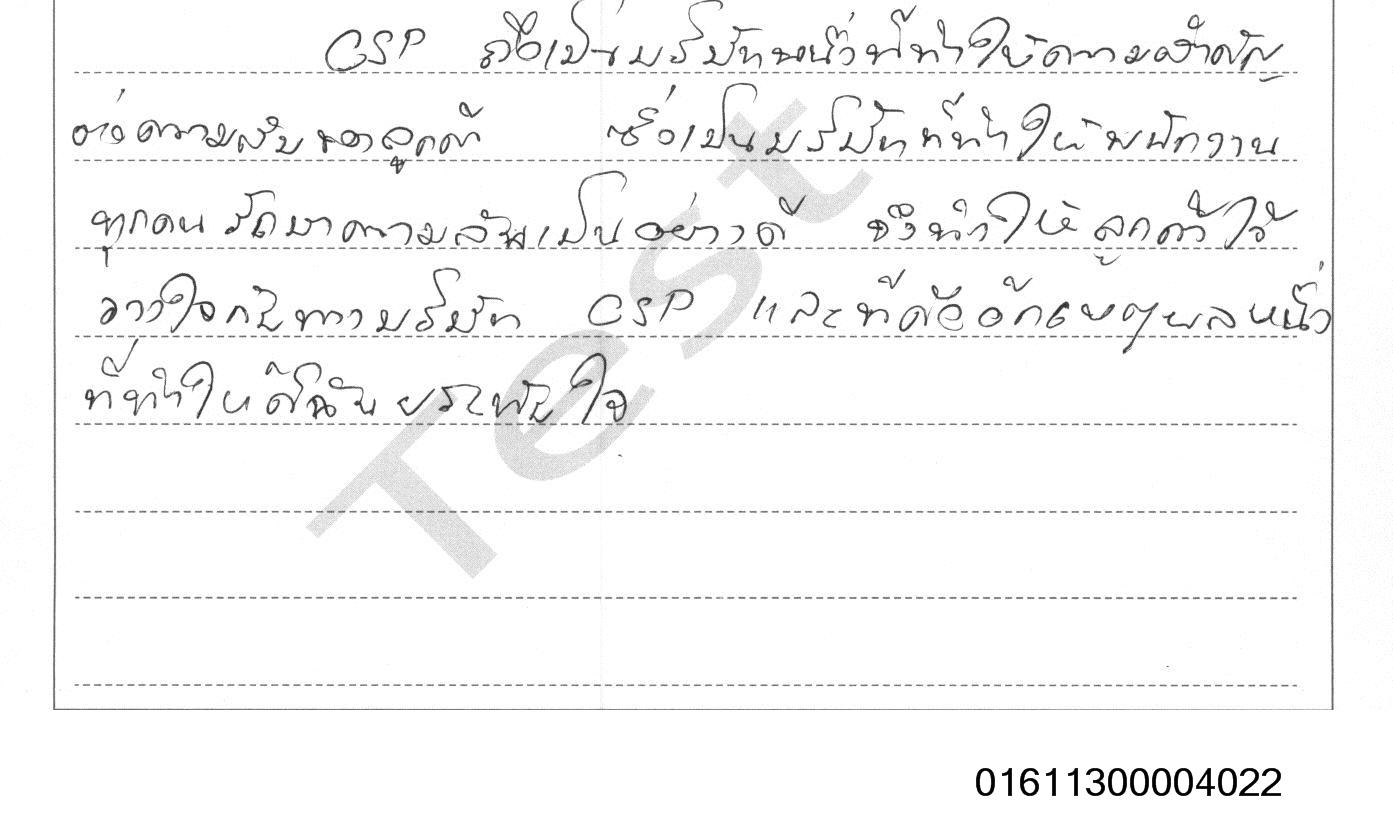 CSP ถือเป็นบริษัทหนึ่งที่ทำให้ความสำคัญ
ต่อความลับของลูกค้า ซึ่งเป็นบริษัทที่ทำให้พนักงาน
ทุกคนรักษาความลับเป็นอย่างดี จึงทำให้ลูกค้าไว้
วางใจกับทางบริษัท CSP และนี่คืออีกเหตุผลหนึ่ง
ที่ทำให้ดิฉันประทับใจ
Test
01611300004022